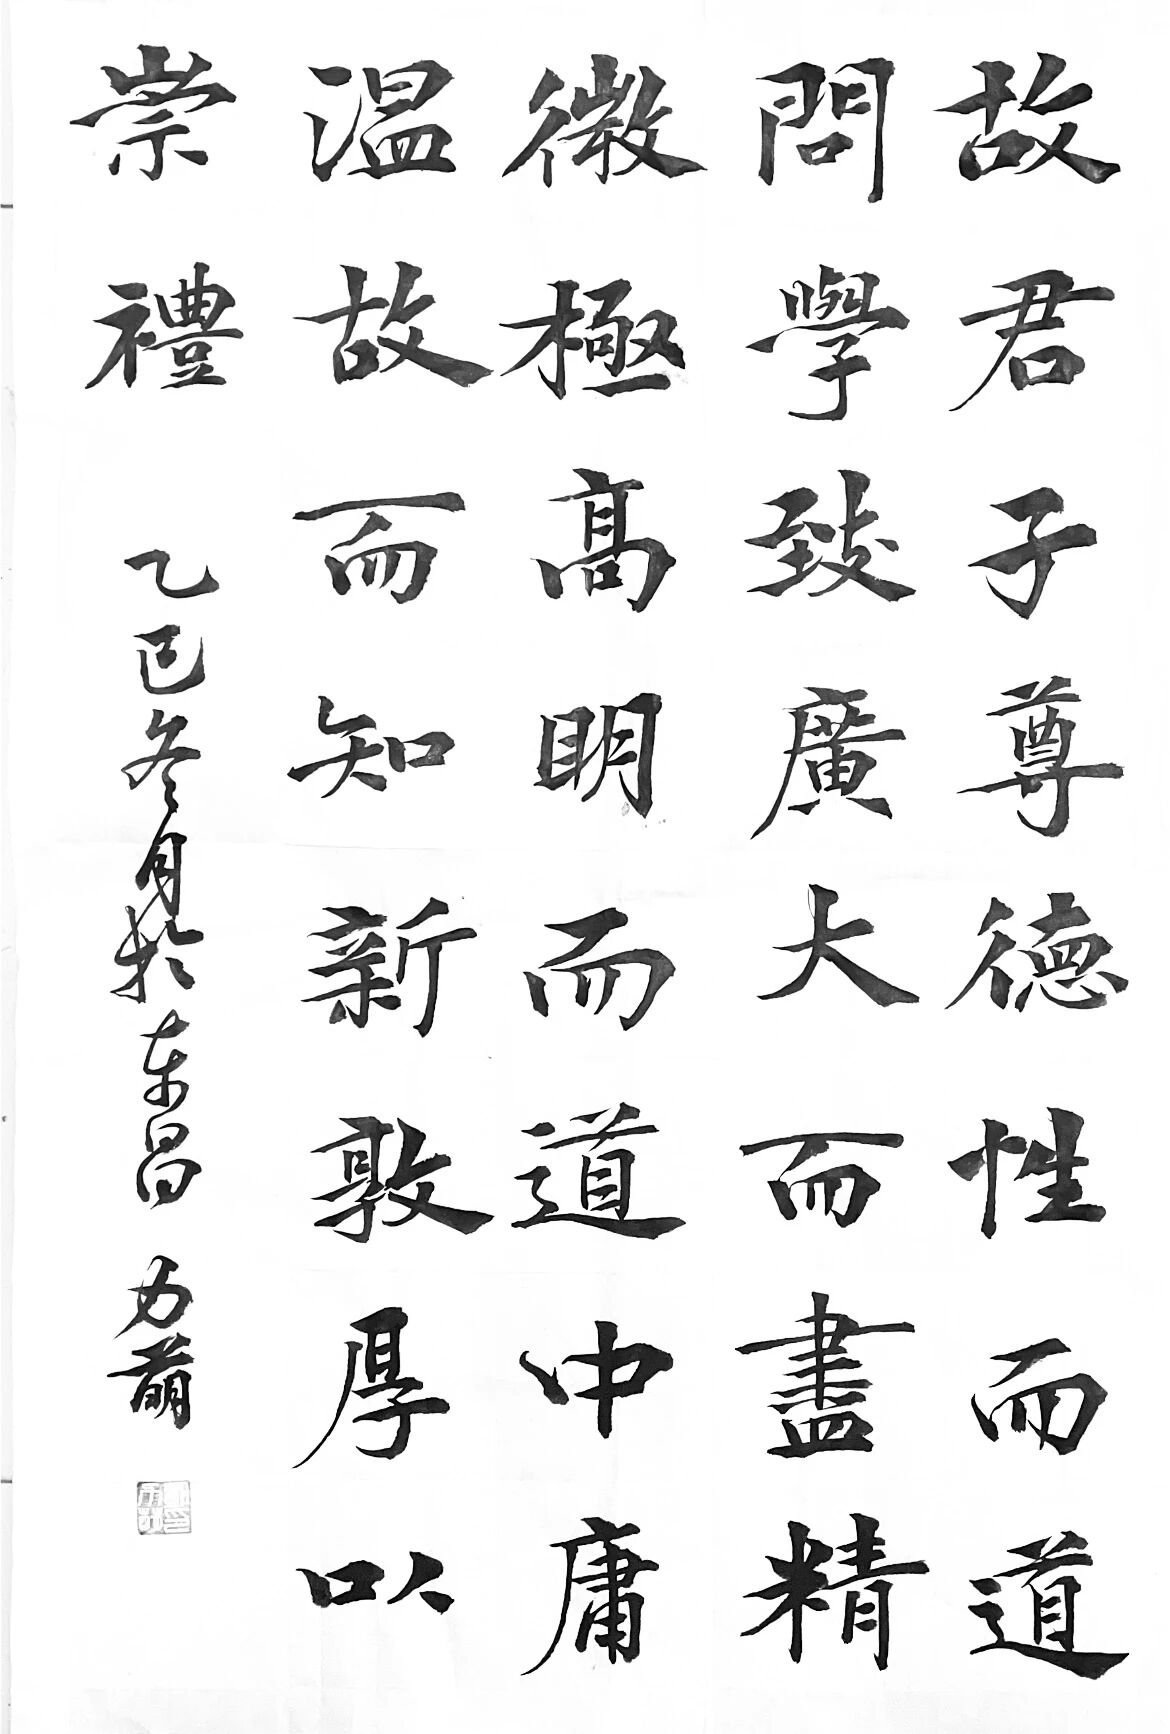 故君子尊德性而道
問學致廣大而盡精
微極高明而道中庸
溫故而知新敦厚以
崇禮
乙巳冬月於东昌 力萠